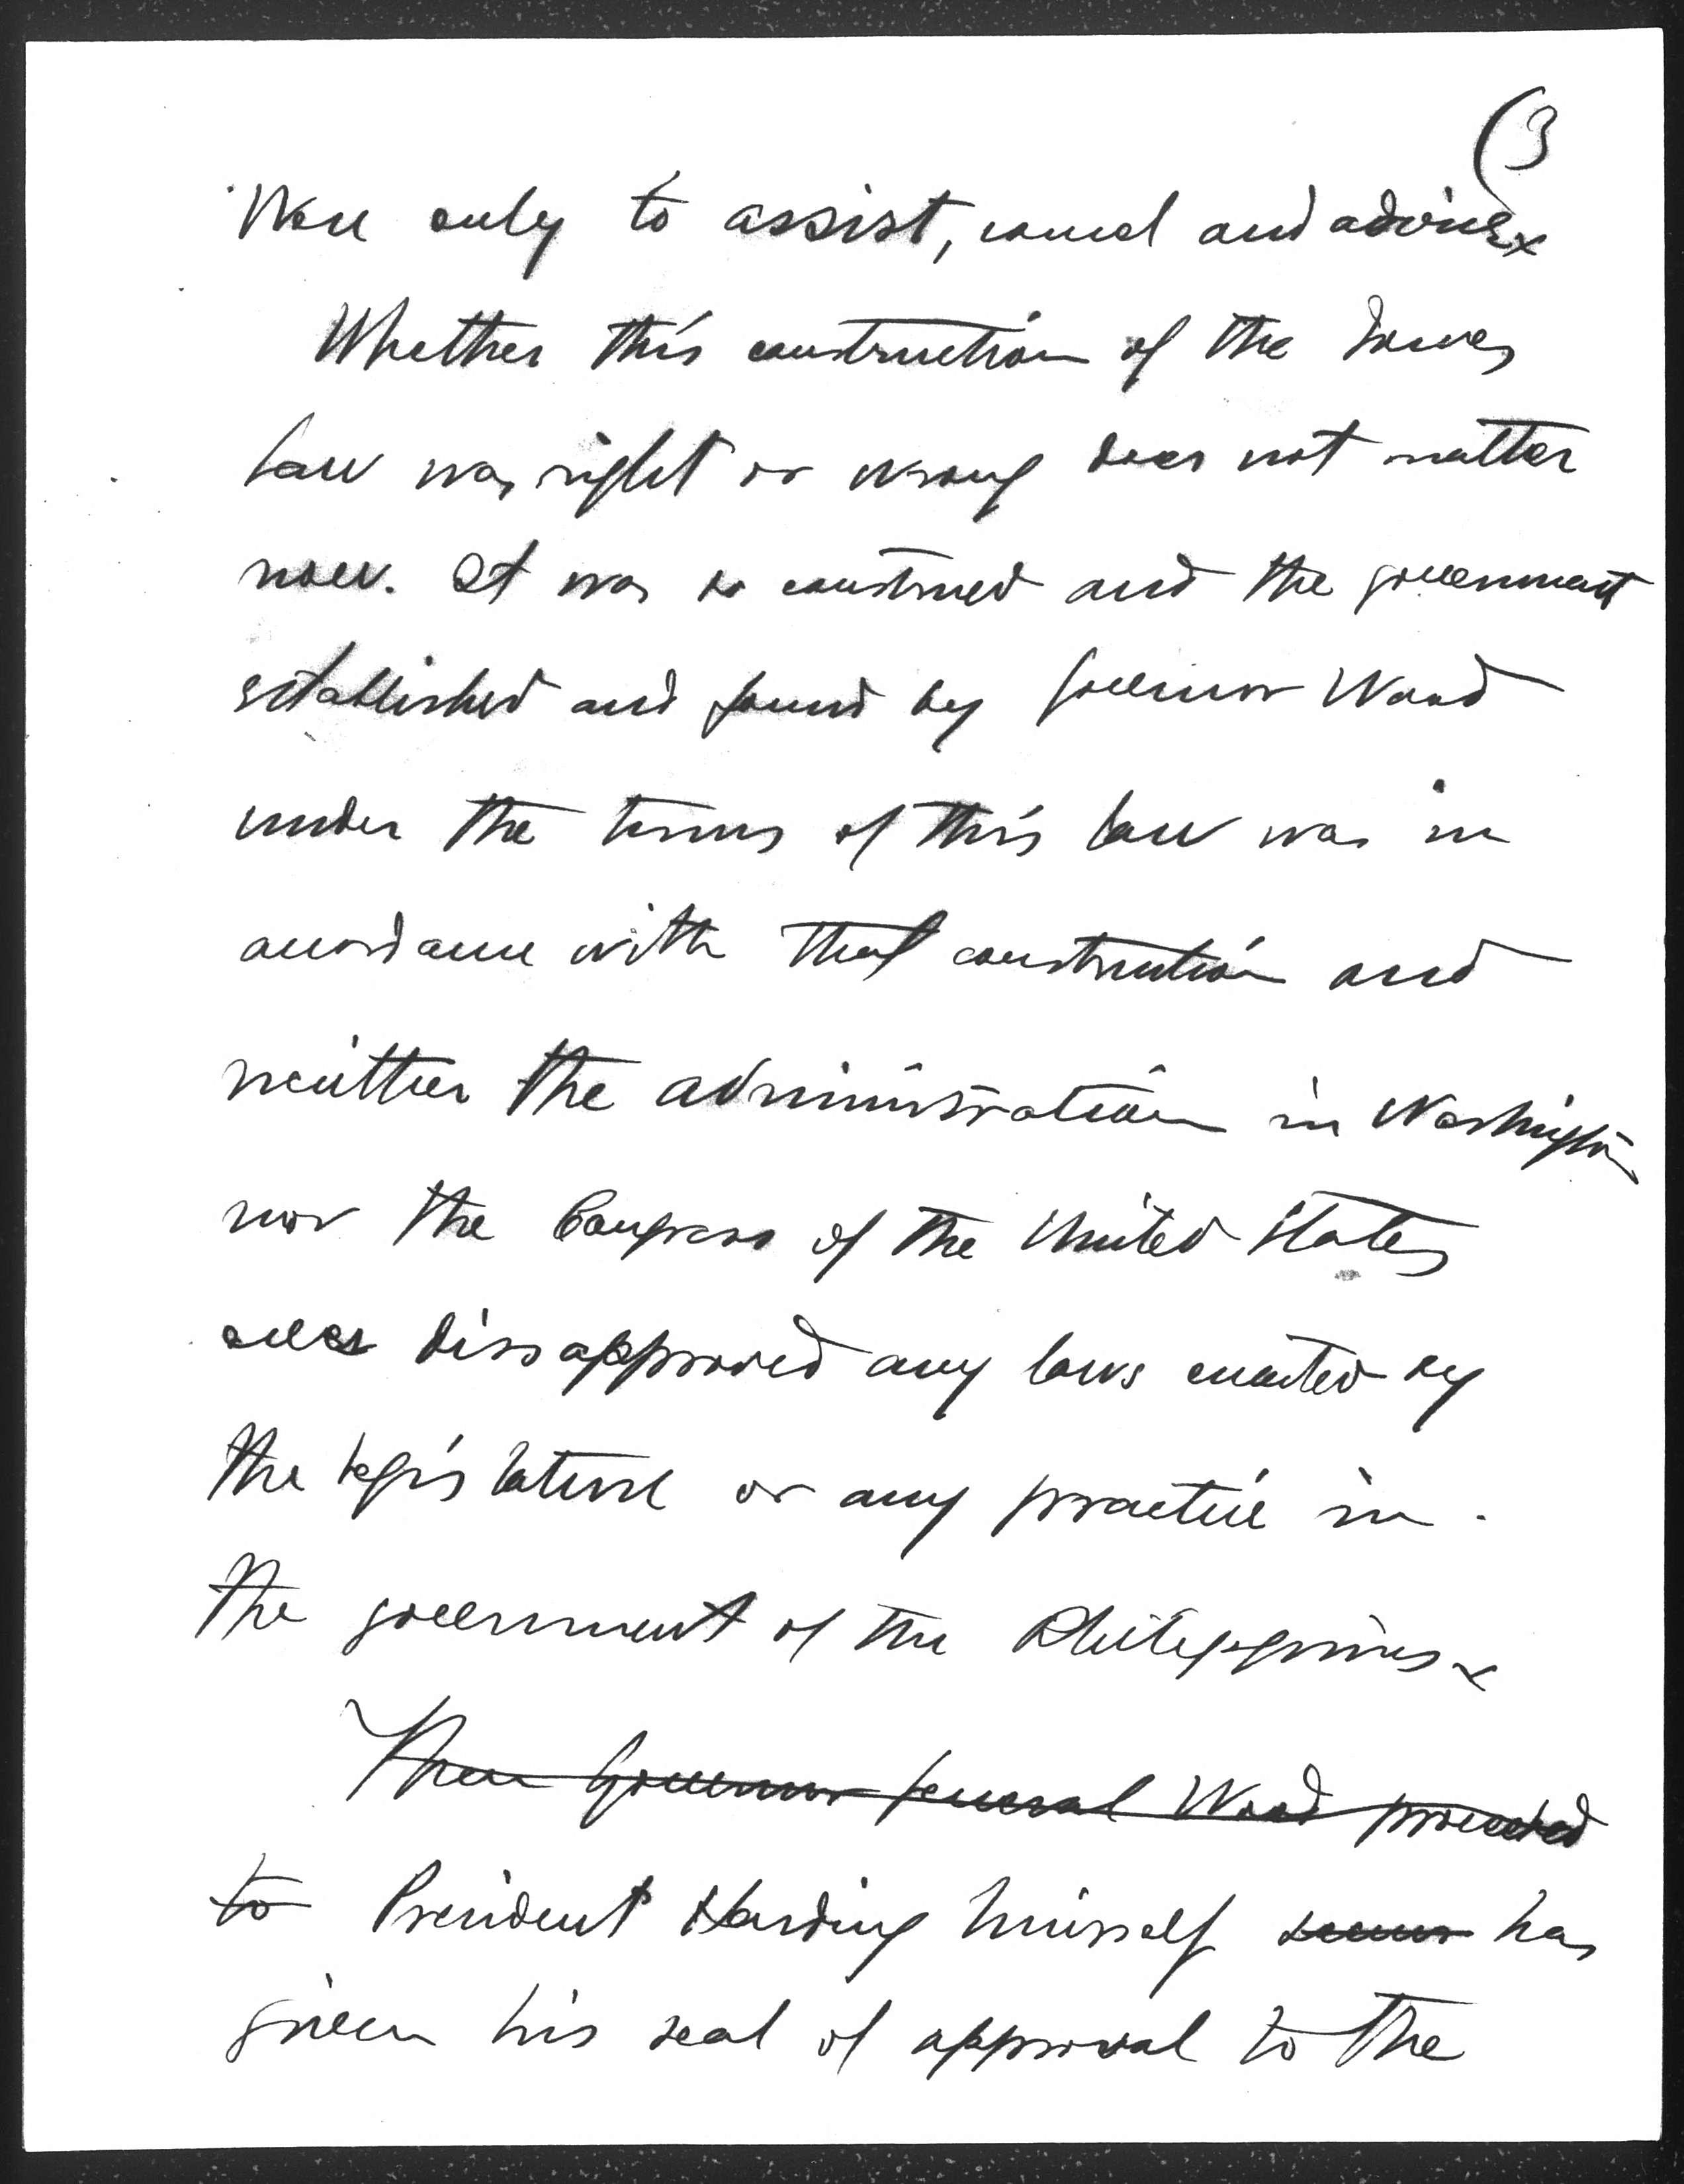 (3
were only to assist, council and advise x
Whether this construction of the Jones
law was right or wrong does not matter
now. It was so construed and the government
established and found by Governor Wood
under the terms of this law was in
accordance with that construction and
neither the administration in Washington
nor the Congress of the United States
ever dissapproved any laws enacted by
the legislature or any practice in
the government of the Philippines x
Then Governor General Wood proceeded
to President Harding himself seems has
given his seal of approval to the